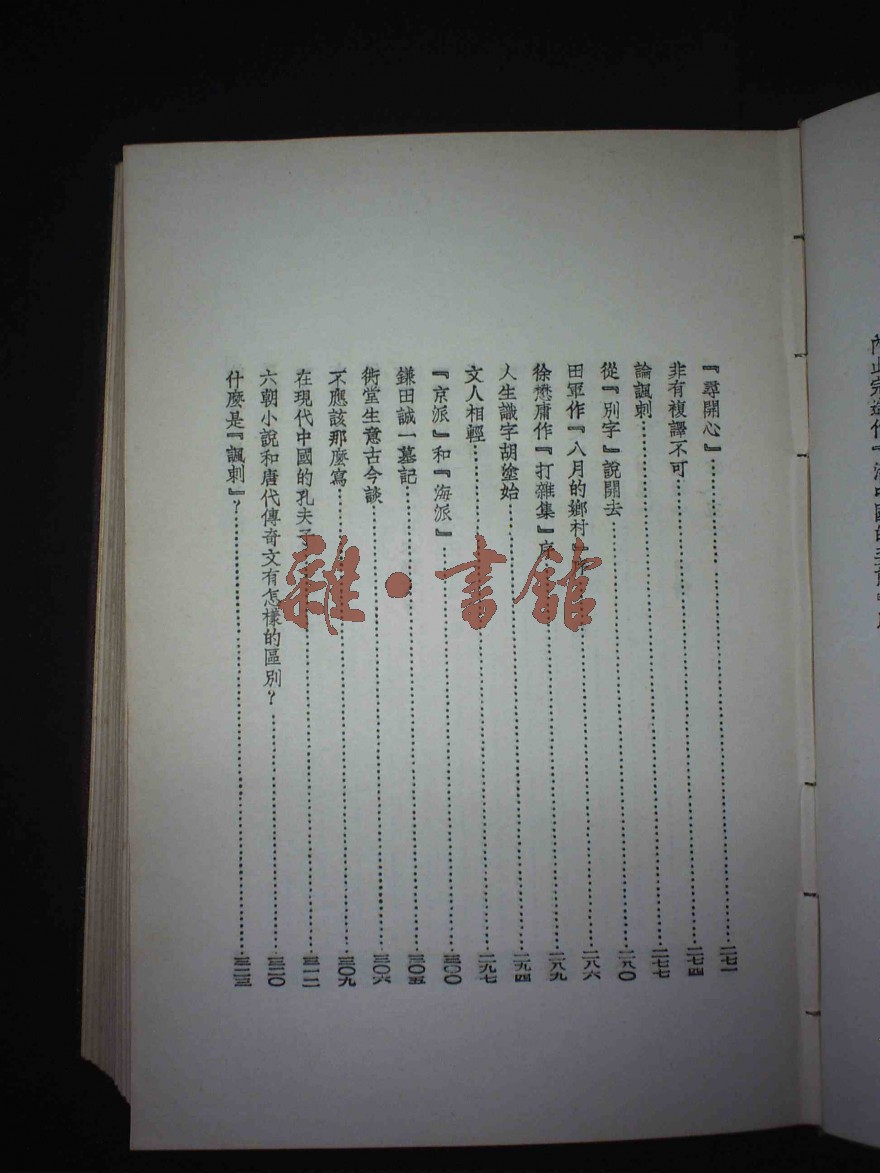 『尋開心』……二七一
非有複譯不可……二七四
論諷刺……二七七
從『別字』說開去……二八〇
田軍作『八月的鄉村……二八六
徐懋庸作『打雜集』序……二八九
人生識字胡塗始……二九四
文人相輕……二九七
『京派』和『海派』……三〇〇
鎌田誠一墓記……三〇五
衖堂生意古今談……三〇六
不應該那麼寫……三〇九
在現代中國的孔夫子……三一二
六朝小說和唐代傳奇文有怎樣的區別？……三二〇
什麼是『諷刺』？……三二三
雜·書館